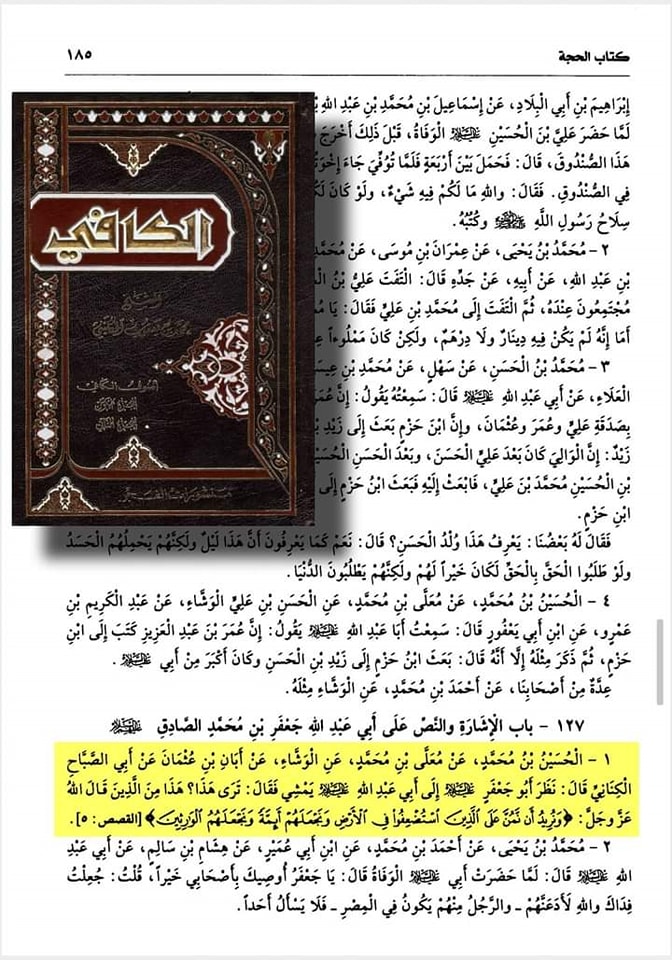 كتاب الحجة
١٨٥
إِبْرَاهِيمَ بْنِ أَبِي الْبِلَادِ، عَنْ إِسْمَاعِيلَ بْنِ مُحَمَّدِ بْنِ عَبْدِ اللهِ
لَمَّا حَضَرَ عَلِيَّ بْنَ الْحُسَيْنِ عليه السلام الْوَفَاةُ، قَبْلَ ذَلِكَ أَخْرَجَ
هَذَا الصُّنْدُوقَ، قَالَ: فَحَمَلَ بَيْنَ أَرْبَعَةٍ فَلَمَّا تُوُفِّيَ جَاءَ
فِي الصُّنْدُوقِ. فَقَالَ: وَاللهِ مَا لَكُمْ فِيهِ شَيْءٌ، وَلَوْ كَانَ
سِلَاحُ رَسُولِ اللَّهِ وَكُتُبُهُ.
٢ - مُحَمَّدُ بْنُ يَحْيَى، عَنْ عِمْرَانَ بْنِ مُوسَى، عَنْ
بْنِ عَبْدِ اللهِ، عَنْ أَبِيهِ، عَنْ جَدِّهِ قَالَ: الْتَفَتَ عَلِيُّ بْنُ
مُجْتَمِعُونَ عِنْدَهُ، ثُمَّ الْتَفَتَ إِلَى مُحَمَّدِ بْنِ عَلِيٍّ فَقَالَ: يَا
أَمَا إِنَّهُ لَمْ يَكُنْ فِيهِ دِينَارٌ وَلَا دِرْهَمٌ، وَلَكِنْ كَانَ مَمْلُوءاً
٣ - مُحَمَّدُ بْنُ الْحَسَنِ، عَنْ سَهْلٍ، عَنْ مُحَمَّدِ بْنِ
الْعَلَاءِ، عَنْ أَبِي عَبْدِ اللهِ عليه السلام قَالَ: سَمِعْتُهُ يَقُولُ: إِنَّ
بِصَدَقَةِ عَلِيٍّ وَعُمَرَ وَعُثْمَانَ، وَإِنَّ ابْنَ حَزْمٍ بَعَثَ إِلَى زَيْدِ
زَيْدٌ: إِنَّ الْوَالِيَ كَانَ بَعْدَ عَلِيٍّ الْحَسَنَ، وَبَعْدَ الْحَسَنِ الْحُسَيْنَ
بْنِ الْحُسَيْنِ مُحَمَّدَ بْنَ عَلِيٍّ، فَابْعَثْ إِلَيْهِ فَبَعَثَ ابْنُ حَزْمٍ إِلَى
ابْنِ حَزْمٍ.
فَقَالَ لَهُ بَعْضُنَا: يَعْرِفُ هَذَا وُلْدُ الْحَسَنِ؟ قَالَ: نَعَمْ كَمَا يَعْرِفُونَ أَنَّ هَذَا لَيْلٌ وَلَكِنَّهُمْ يَحْمِلُهُمُ الْحَسَدُ
وَلَوْ طَلَبُوا الْحَقَّ بِالْحَقِّ لَكَانَ خَيْراً لَهُمْ وَلَكِنَّهُمْ يَطْلُبُونَ الدُّنْيَا.
٤ - الْحُسَيْنُ بْنُ مُحَمَّدٍ، عَنْ مُعَلَّى بْنِ مُحَمَّدٍ، عَنِ الْحَسَنِ بْنِ عَلِيٍّ الْوَشَّاءِ، عَنْ عَبْدِ الْكَرِيمِ بْنِ
عَمْرٍو، عَنِ ابْنِ أَبِي يَعْفُورٍ قَالَ: سَمِعْتُ أَبَا عَبْدِ اللهِ عليه السلام يَقُولُ: إِنَّ عُمَرَ بْنَ عَبْدِ الْعَزِيزِ كَتَبَ إِلَى ابْنِ
حَزْمٍ، ثُمَّ ذَكَرَ مِثْلَهُ إِلَّا أَنَّهُ قَالَ: بَعَثَ ابْنُ حَزْمٍ إِلَى زَيْدِ بْنِ الْحَسَنِ وَكَانَ أَكْبَرَ مِنْ أَبِي عليه السلام.
عِدَّةٌ مِنْ أَصْحَابِنَا، عَنْ أَحْمَدَ بْنِ مُحَمَّدٍ، عَنِ الْوَشَّاءِ مِثْلَهُ.
١٢٧ - باب الْإِشَارَةِ وَالنَّصِّ عَلَى أَبِي عَبْدِ اللهِ جَعْفَرِ بْنِ مُحَمَّدٍ الصَّادِقِ
١ - الْحُسَيْنُ بْنُ مُحَمَّدٍ، عَنْ مُعَلَّى بْنِ مُحَمَّدٍ، عَنِ الْوَشَّاءِ، عَنْ أَبَانِ بْنِ عُثْمَانَ عَنْ أَبِي الصَّبَّاحِ
الْكِنَانِيِّ قَالَ: نَظَرَ أَبُو جَعْفَرٍ عليه السلام إِلَى أَبِي عَبْدِ اللهِ عليه السلام يَمْشِي فَقَالَ: تَرَى هَذَا؟ هَذَا مِنَ الَّذِينَ قَالَ اللهُ
عَزَّ وَجَلَّ: ﴿وَنُرِيدُ أَن نَّمُنَّ عَلَى الَّذِينَ اسْتُضْعِفُوا فِي الْأَرْضِ وَنَجْعَلَهُمْ أَئِمَّةً وَنَجْعَلَهُمُ الْوَارِثِينَ﴾ [القصص: ٥].
٢ - مُحَمَّدُ بْنُ يَحْيَى، عَنْ أَحْمَدَ بْنِ مُحَمَّدٍ، عَنِ ابْنِ أَبِي عُمَيْرٍ، عَنْ هِشَامِ بْنِ سَالِمٍ، عَنْ أَبِي عَبْدِ
اللهِ عليه السلام قَالَ: لَمَّا حَضَرَتْ أَبِي عليه السلام الْوَفَاةُ قَالَ: يَا جَعْفَرُ أُوصِيكَ بِأَصْحَابِي خَيْراً، قُلْتُ: جُعِلْتُ
فِدَاكَ وَاللهِ لَأَدَعَنَّهُمْ ـ وَالرَّجُلُ مِنْهُمْ يَكُونُ فِي الْمِصْرِ ـ فَلَا يَسْأَلُ أَحَداً.
الكافي